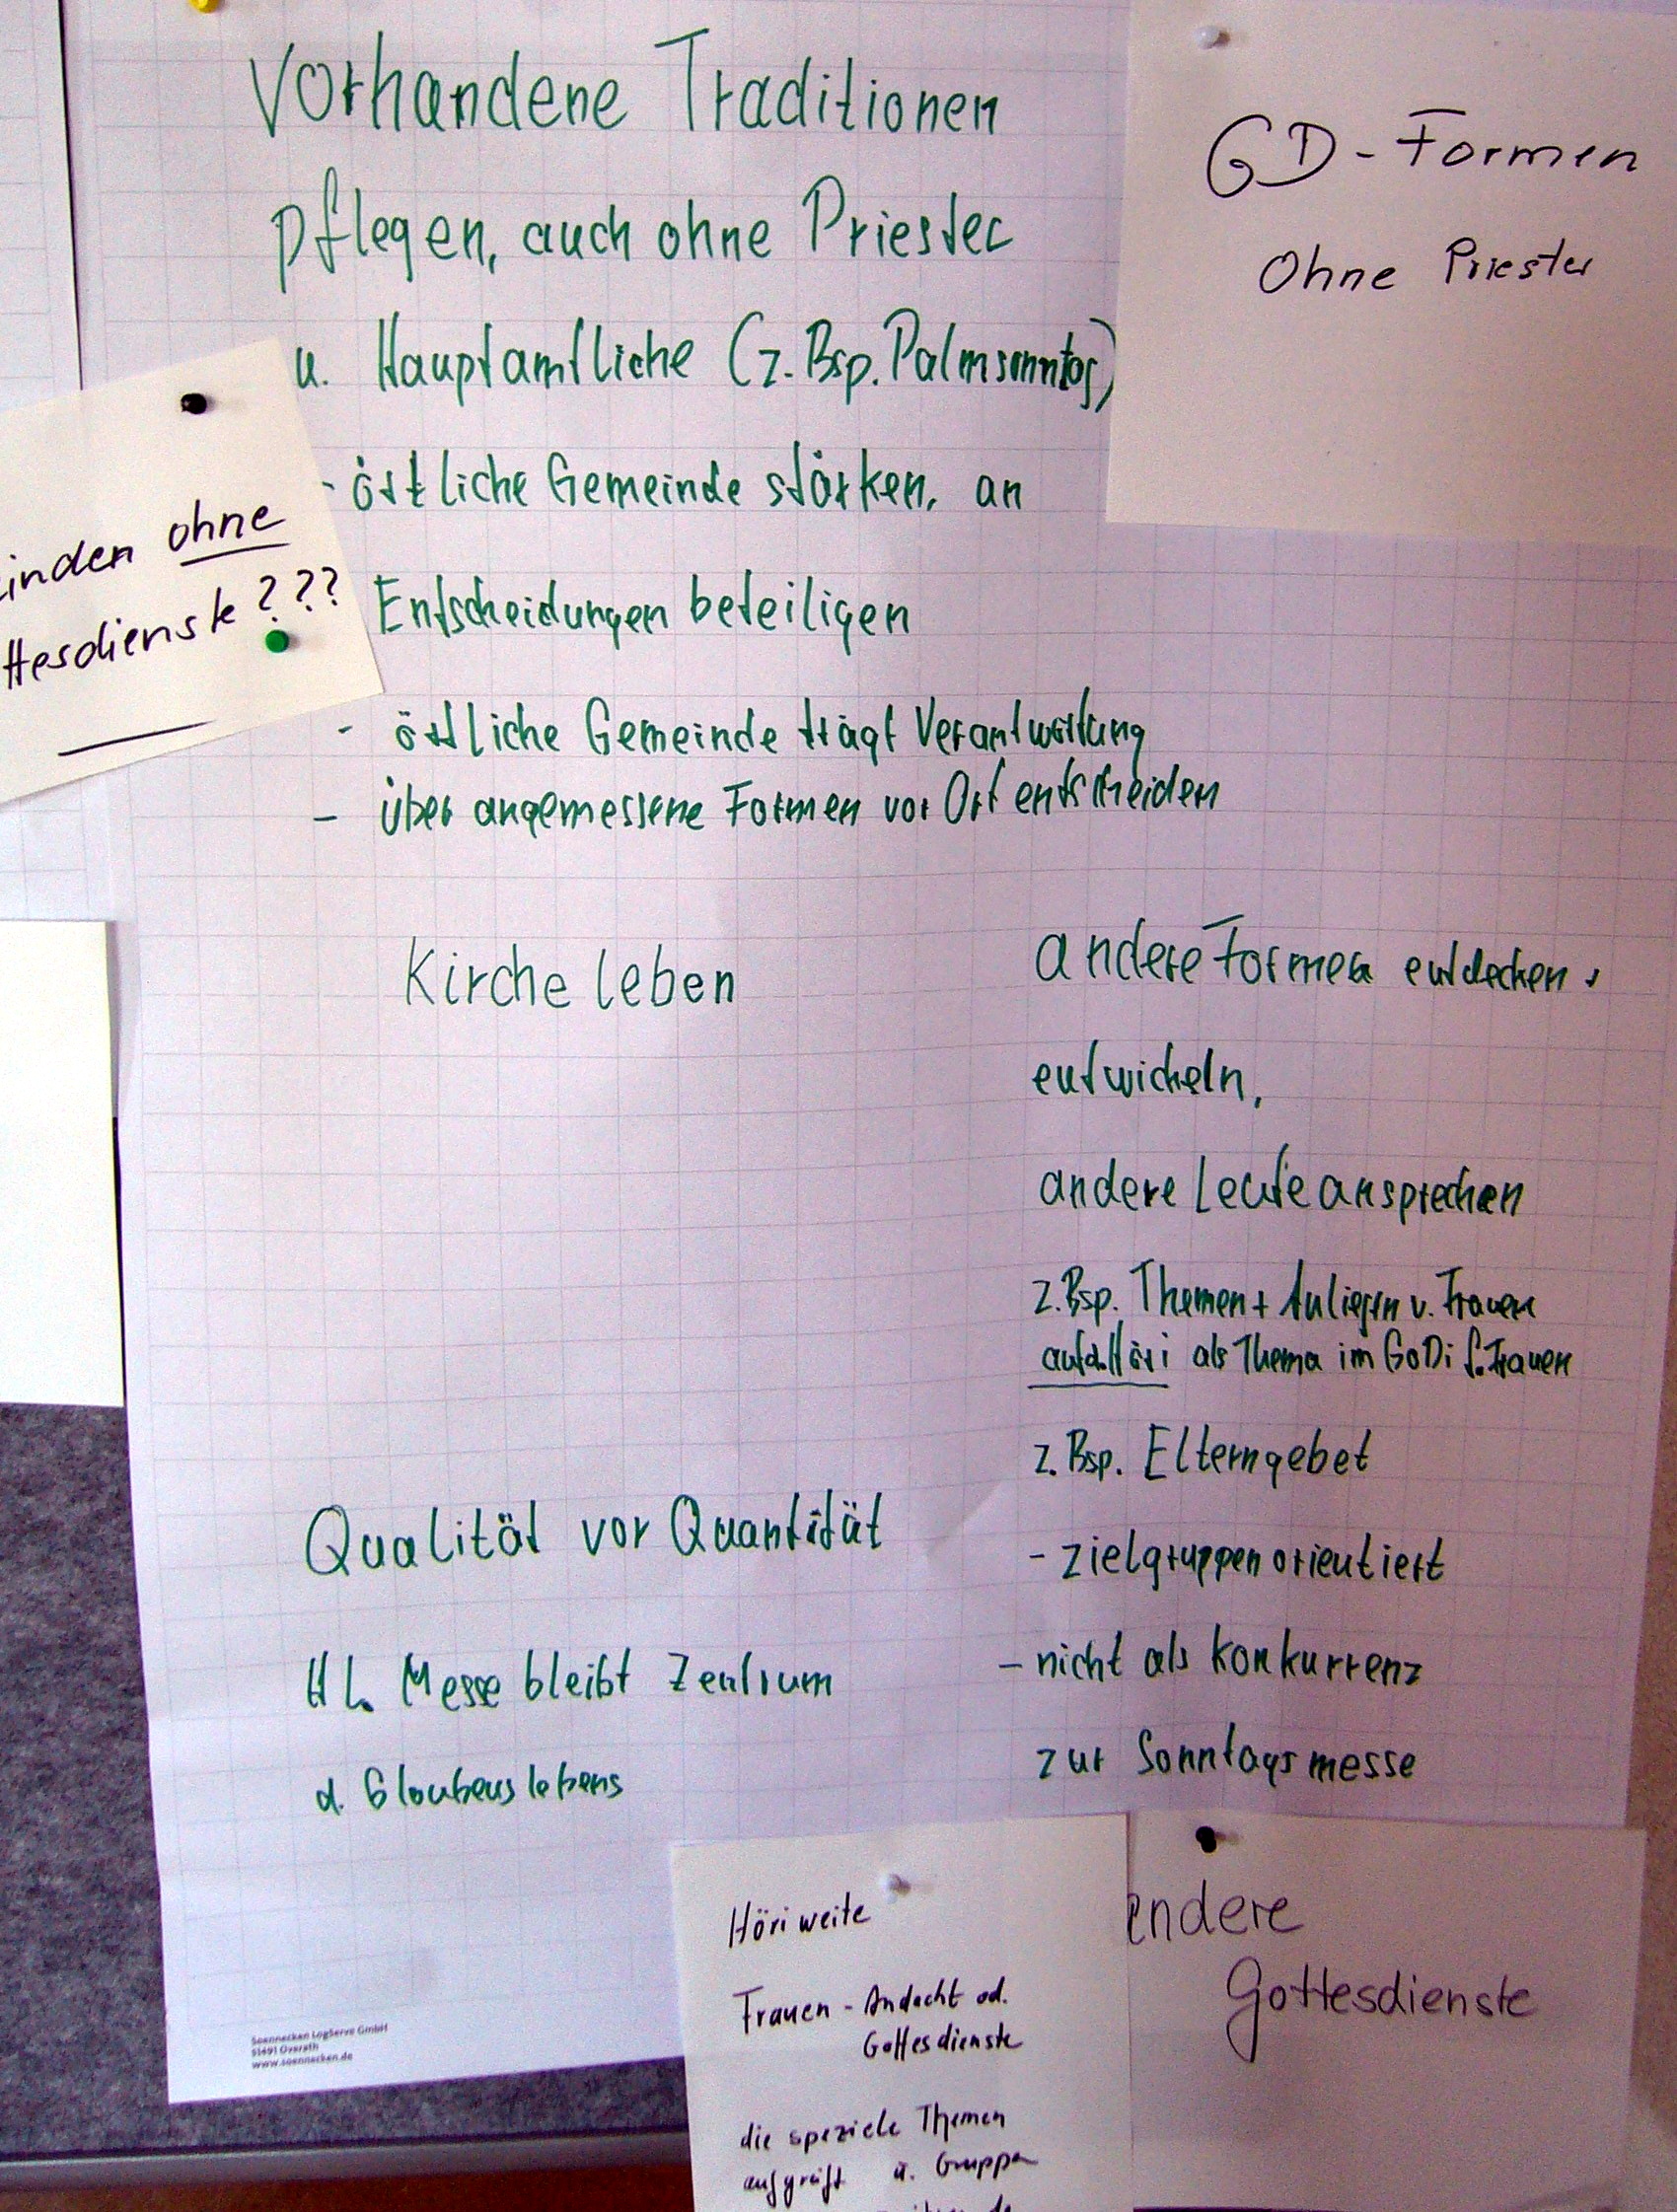 Vorhandene Traditionen
pflegen, auch ohne Priester
u. Hauptamtliche (z.Bsp. Palmsonntag)
- örtliche Gemeinde stärken, an
Entscheidungen beteiligen
- örtliche Gemeinde trägt Verantwortung
- über angemessene Formen vor Ort entscheiden
GD-Formen
Ohne Priester
inden ohne
ttesdienste???
Kirche leben
andere Formen entdecken +
entwickeln,
andere Leute ansprechen
z.Bsp. Themen + Anliegen v. Frauen
auf d. Höri als Thema im GoDi f. Frauen
z.Bsp. Elterngebet
- zielgruppenorientiert
- nicht als Konkurrenz
zur Sonntagsmesse
Qualität vor Quantität
Hl. Messe bleibt Zentrum
d. Glaubenslebens
Höri weite
Frauen - Andacht od.
Gottesdienste
die spezielle Themen
aufgreift u. Gruppen
andere
Gottesdienste
Soennecken LogServe GmbH
51491 Overath
www.soennecken.de